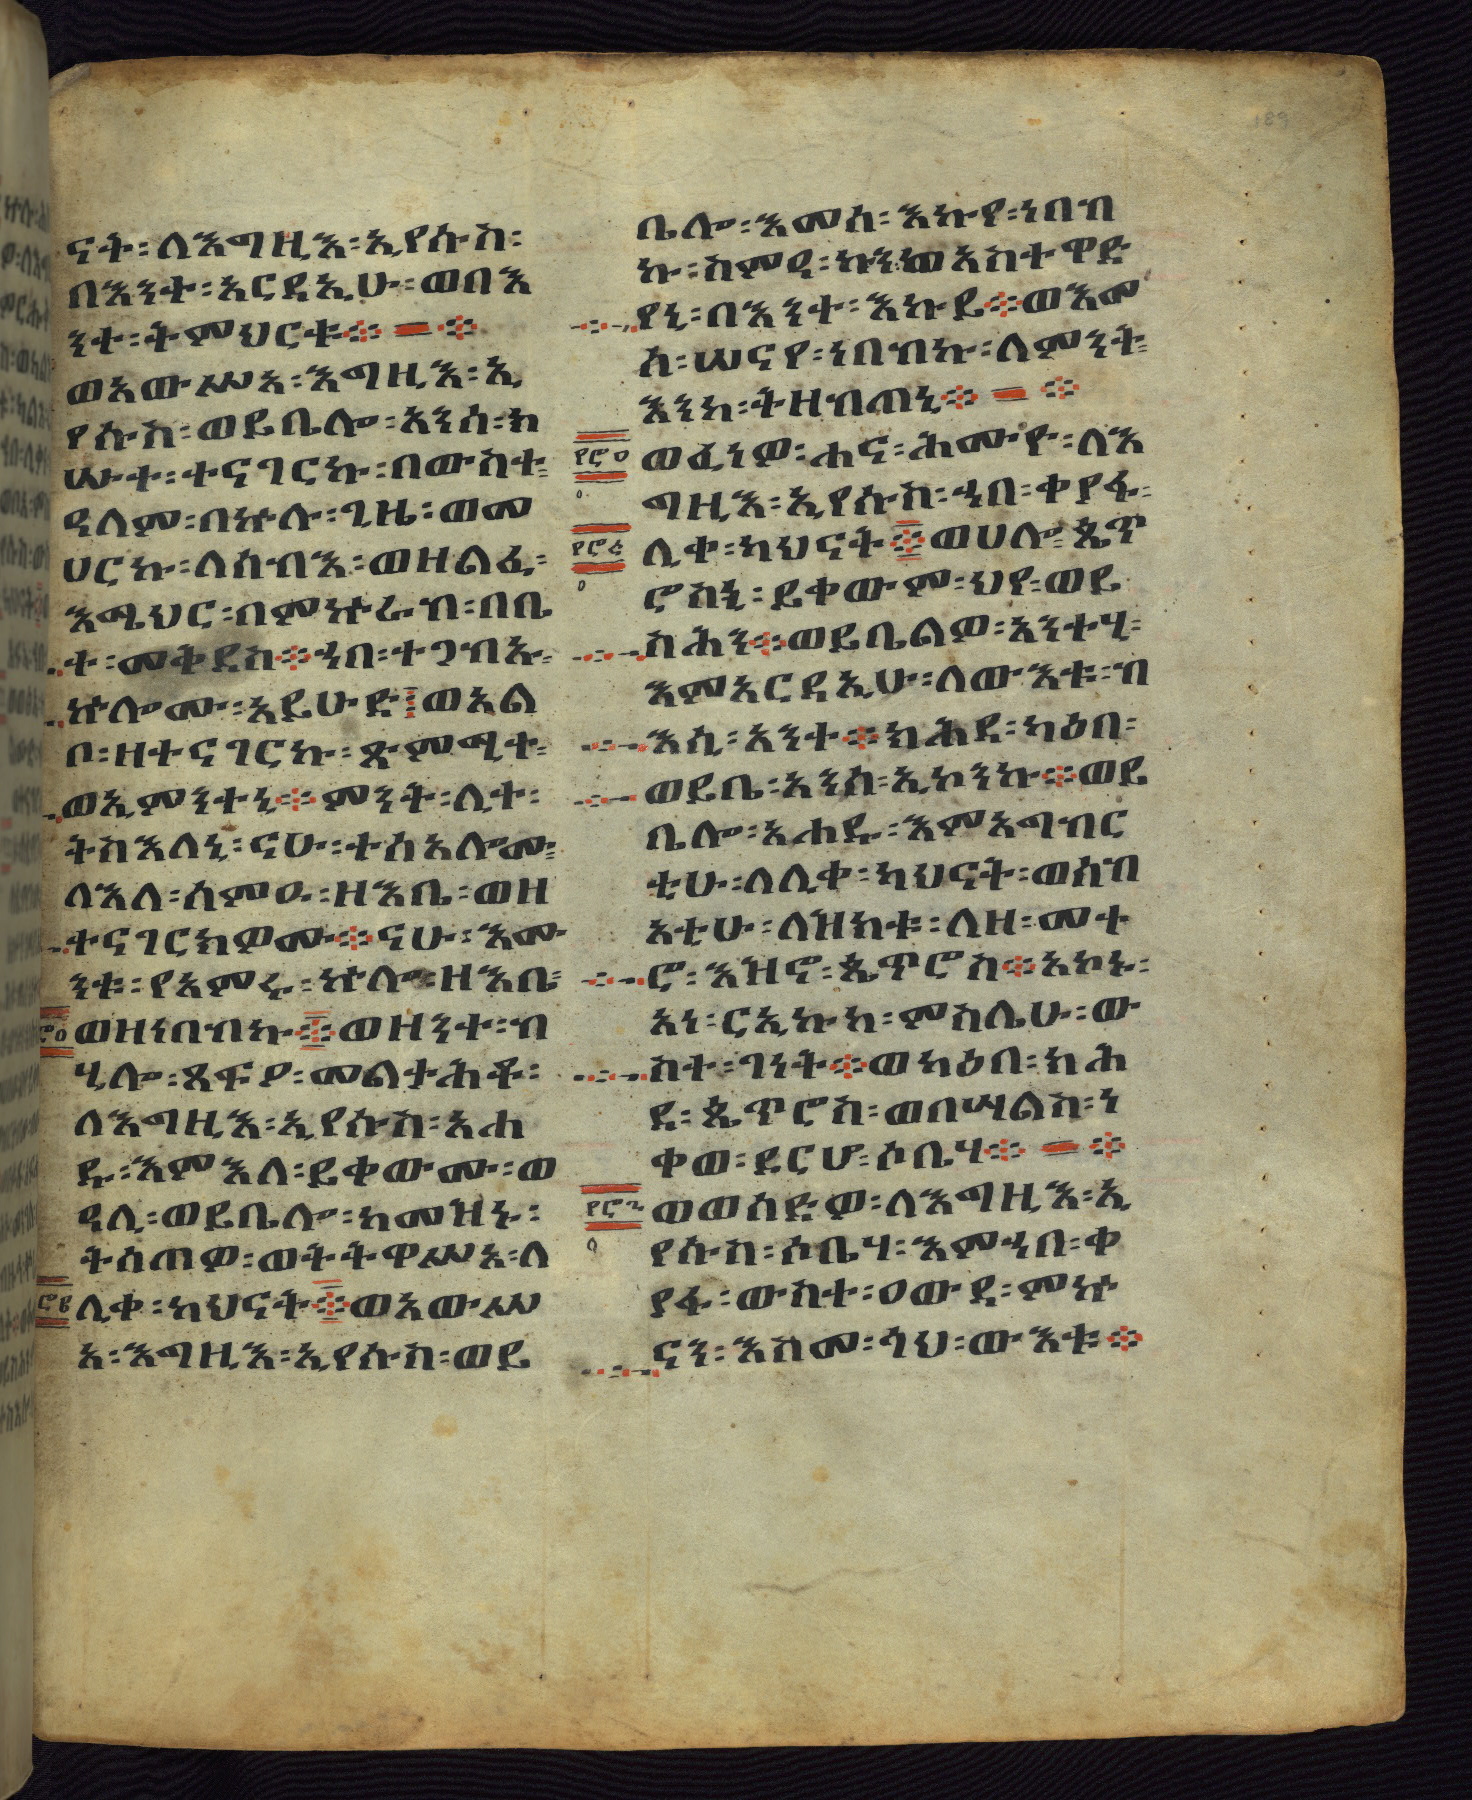 ናት፡ለእግዚእ፡ኢየሱስ፡
በእንተ፡አርዳኢሁ፡ወበእ
ንተ፡ትምህርቱ፨ = ፨
ወአውሥአ፡እግዚእ፡ኢ
የሱስ፡ወይቤሎ፡አንሰ፡ክ
ሡተ፡ተናገርኩ፡በውስተ፡
ዓለም፡በኵሉ፡ጊዜ፡ወመ
ሀርኩ፡ለሰብእ፡ወዘልፈ፡
እሜህር፡በምኵራብ፡በቤ
ተ፡መቅደስ፨ኀበ፡ተጋብኡ፡
ኵሎሙ፡አይሁድ፤ወአል
ቦ፡ዘተናገርኩ፡ጽምሚተ፡
ወኢምንተኒ፨ምንት፡ሊተ፡
ትስእለኒ፡ናሁ፡ተሰአሎሙ፡
ለእለ፡ሰምዑ፡ዘእቤ፡ወዘ
ተናገርክዎሙ፨ናሁ፡እሙ
ንቱ፡የአምሩ፡ኵሎ፡ዘእቤ፡
ወዘነበብኩ፨ወዘንተ፡ብ
ሂሎ፡ጸፍዖ፡መልታሕቶ፡
ለእግዚእ፡ኢየሱስ፡አሐ
ዱ፡እምእለ፡ይቀውሙ፡ወ
ዓሊ፡ወይቤሎ፡ከመዝኑ፡
ትሰጠዎ፡ወትትዋሥእ፡ለ
ሊቀ፡ካህናት፨ወአውሥ
አ፡እግዚእ፡ኢየሱስ፡ወይ
ቤሎ፡እመሰ፡እኩየ፡ነበብ
ኩ፡ስምዓ፡ኩን፡ወአስተዋድ
የኒ፡በእንተ፡እኩይ፨ወእመ
ሰ፡ሠናየ፡ነበብኩ፡ለምንት፡
እንከ፡ትዘብጠኒ፨ = ፨
የሮዐ
ወፈነዎ፡ሐና፡ሕሙዮ፡ለእ
ግዚእ፡ኢየሱስ፡ኀበ፡ቀያፋ፡
ሊቀ፡ካህናት፨ወሀሎ፡ጴጥ
ሮስኒ፡ይቀውም፡ህየ፡ወይ
ስሕን፨ወይቤልዎ፡አንተሂ፡
እምአርዳኢሁ፡ለውእቱ፡ብ
እሲ፡አንተ፨ክሕደ፡ካዕበ፡
ወይቤ፡አንሰ፡ኢኮንኩ፨ወይ
ቤሎ፡አሐዱ፡እምአግብር
ቲሁ፡ለሊቀ፡ካህናት፡ወሰብ
አቲሁ፡ለዝክቱ፡ለዘ፡መተ
ሮ፡እዝኖ፡ጴጥሮስ፨አኮኑ፡
አነ፡ርኢኩከ፡ምስሌሁ፡ው
ስተ፡ገነት፨ወካዕበ፡ክሕ
ደ፡ጴጥሮስ፡ወበሣልስ፡ነ
ቀወ፡ደርሆ፡ሶቤሃ፨ = ፨
ወወሰድዎ፡ለእግዚእ፡ኢ
የሱስ፡ሶቤሃ፡እምኀበ፡ቀ
ያፋ፡ውስተ፡ዐውደ፡ምኵ
ናን፡እስመ፡ጎህ፡ውእቱ፨